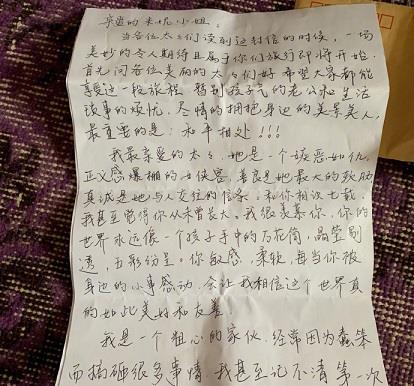 亲爱的朱妮小姐。
当各位太太们读到这封信的时候，一场
美妙的令人期待且属于你们旅行即将开始.
首先问各位美丽的太太们好 希望大家都能
享受这一段旅程 暂别孩子气的老公和生活
琐事的烦忧. 尽情的拥抱身边的美景美人,
最重要的是: 和平相处!!!
我最亲爱的太太, 她是一个嫉恶如仇,
正义感爆棚的女侠客, 善良是她最大的软肋
真诚是她与人交往的信条. 和你相识七载,
我甚至觉得你从未曾长大. 我很羡慕你, 你的
世界永远像一个孩子手中的万花筒, 晶莹剔
透, 五彩纷呈. 你敏感, 柔软, 每当你被
身边的小事感动, 会让我相信这个世界真
的如此美好和友善.
我是一个粗心的家伙, 经常因为蠢笨
而搞砸很多事情, 我甚至记不清第一次